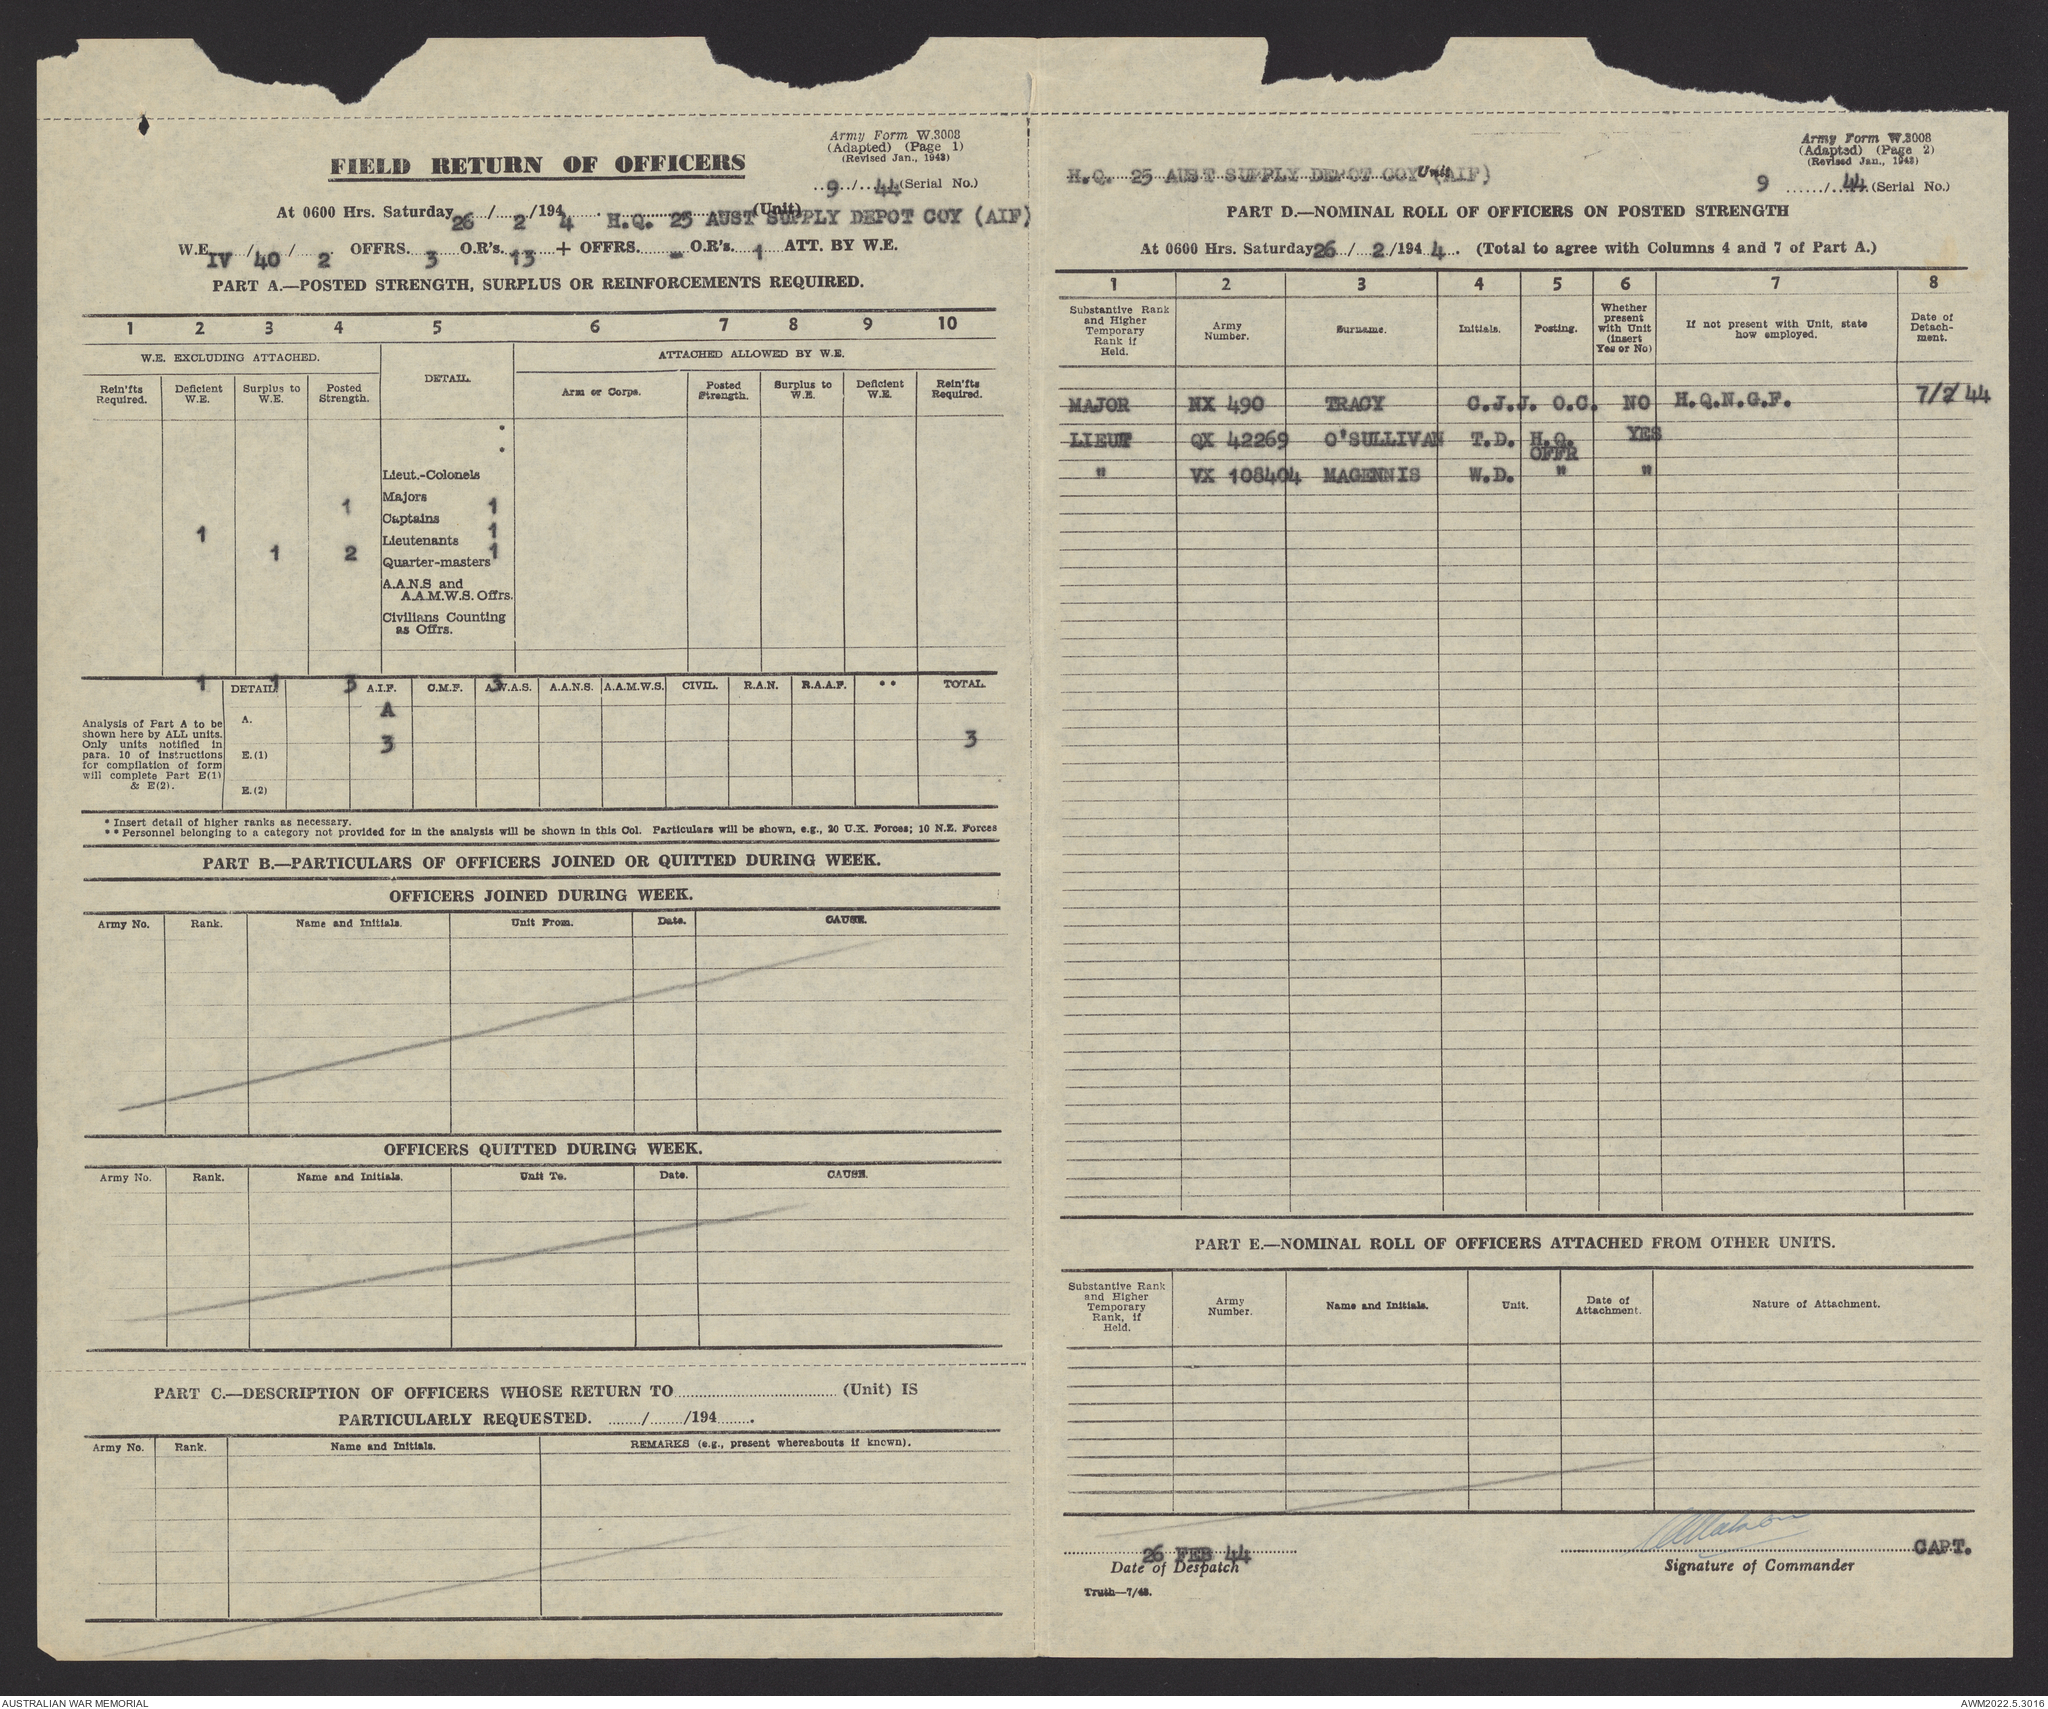 Army Form W.3008
(Adapted) (Page 1)
(Revised Jan., 1943)
FIELD RETURN OF OFFICERS
9/44 (Serial No.)
At 0600 Hrs. Saturday 26/2/1944. H.Q. 25 AUST SUPPLY DEPOT COY (AIF) (Unit)
W.E. IV/40/2 OFFRS. 3 O.R's. 13 + OFFRS. - O.R's. 1 ATT. BY W.E.
PART A.—POSTED STRENGTH, SURPLUS OR REINFORCEMENTS REQUIRED.
1 2 3 4 5 6 7 8 9 10
W.E. EXCLUDING ATTACHED. DETAIL. ATTACHED ALLOWED BY W.E.
Rein'fts Required. Deficient W.E. Surplus to W.E. Posted Strength. Arm or Corps. Posted Strength. Surplus to W.E. Deficient W.E. Rein'fts Required.
*
*
Lieut.-Colonels
Majors
1 1
Captains
1 1
Lieutenants
1 2 1
Quarter-masters
A.A.N.S and
A.A.M.W.S. Offrs.
Civilians Counting
as Offrs.
1 1 3 3
DETAIL A.I.F. C.M.F. A.W.A.S. A.A.N.S. A.A.M.W.S. CIVIL. R.A.N. R.A.A.F. ** TOTAL.
Analysis of Part A to be
shown here by ALL units.
Only units notified in
para. 10 of instructions
for compilation of form
will complete Part E(1)
& E(2).
A. A
3 3
E.(1)
E.(2)
* Insert detail of higher ranks as necessary.
** Personnel belonging to a category not provided for in the analysis will be shown in this Col. Particulars will be shown, e.g., 20 U.K. Forces; 10 N.Z. Forces
PART B.—PARTICULARS OF OFFICERS JOINED OR QUITTED DURING WEEK.
OFFICERS JOINED DURING WEEK.
Army No. Rank. Name and Initials. Unit From. Date. CAUSE.
OFFICERS QUITTED DURING WEEK.
Army No. Rank. Name and Initials. Unit To. Date. CAUSE.
PART C.—DESCRIPTION OF OFFICERS WHOSE RETURN TO .......... (Unit) IS
PARTICULARLY REQUESTED. ......./......./194.......
Army No. Rank. Name and Initials. REMARKS (e.g., present whereabouts if known).
Army Form W.3008
(Adapted) (Page 2)
(Revised Jan., 1943)
H.Q. 25 AUST SUPPLY DEPOT COY (AIF) Unit
9/44 (Serial No.)
PART D.—NOMINAL ROLL OF OFFICERS ON POSTED STRENGTH
At 0600 Hrs. Saturday 26/2/1944. (Total to agree with Columns 4 and 7 of Part A.)
1 2 3 4 5 6 7 8
Substantive Rank and Higher Temporary Rank if Held. Army Number. Surname. Initials. Posting. Whether present with Unit (insert Yes or No) If not present with Unit, state how employed. Date of Detach-ment.
MAJOR NX 490 TRACY C.J.J. O.C. NO H.Q.N.G.F. 7/2/44
LIEUT QX 42269 O'SULLIVAN T.D. H.Q. OFFR YES
" VX 108404 MAGENNIS W.D. " "
PART E.—NOMINAL ROLL OF OFFICERS ATTACHED FROM OTHER UNITS.
Substantive Rank and Higher Temporary Rank, if Held. Army Number. Name and Initials. Unit. Date of Attachment. Nature of Attachment.
26 FEB 44 CAPT.
Date of Despatch Signature of Commander
Truth—7/43.
AUSTRALIAN WAR MEMORIAL AWM2022.5.3016